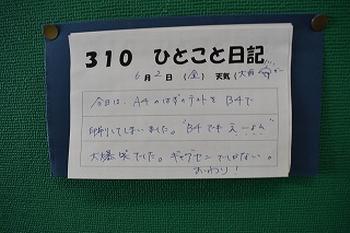 310 ひとこと日記
6月2日 (金) 天気(大雨
今日は、A4のはずのテストを B4で
印刷してしまいました。"B4でもえーよん"
大爆笑でした。ギャグセンでしかない。
おわり!